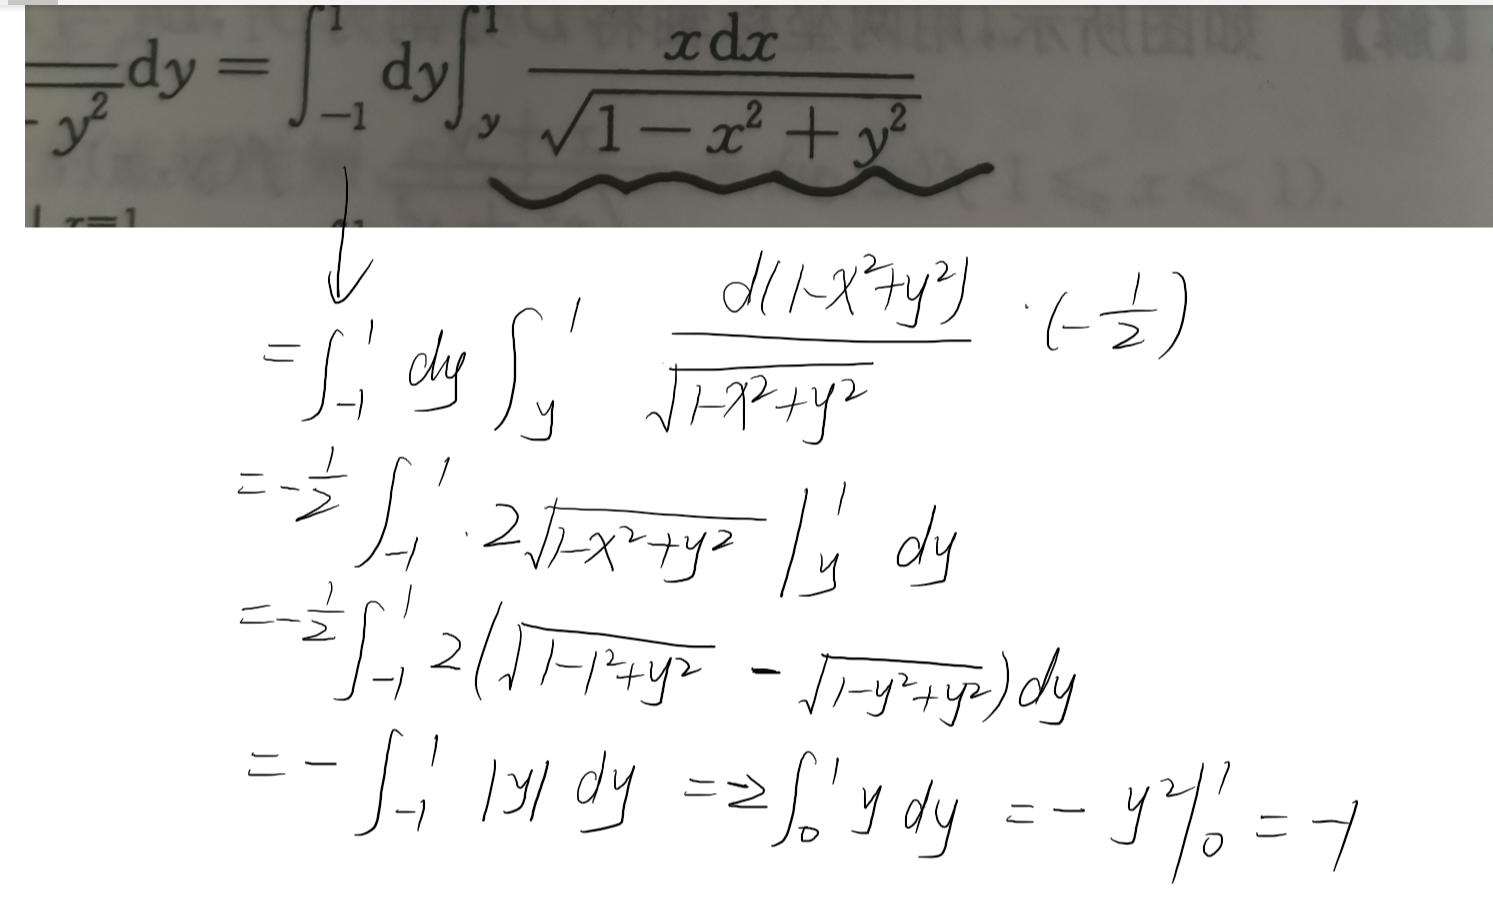 dy = ∫_{-1}^{1} dy ∫_{y}^{1} \frac{xdx}{\sqrt{1-x^2+y^2}}
- y^2
x=1
= ∫_{-1}^{1} dy ∫_{y}^{1} \frac{d(1-x^2+y^2)}{\sqrt{1-x^2+y^2}} · (-\frac{1}{2})
= -\frac{1}{2} ∫_{-1}^{1} · 2\sqrt{1-x^2+y^2} |_{y}^{1} dy
= -\frac{1}{2} ∫_{-1}^{1} 2(\sqrt{1-1^2+y^2} - \sqrt{1-y^2+y^2}) dy
= - ∫_{-1}^{1} |y| dy = -2 ∫_{0}^{1} y dy = - y^2 |_{0}^{1} = -1